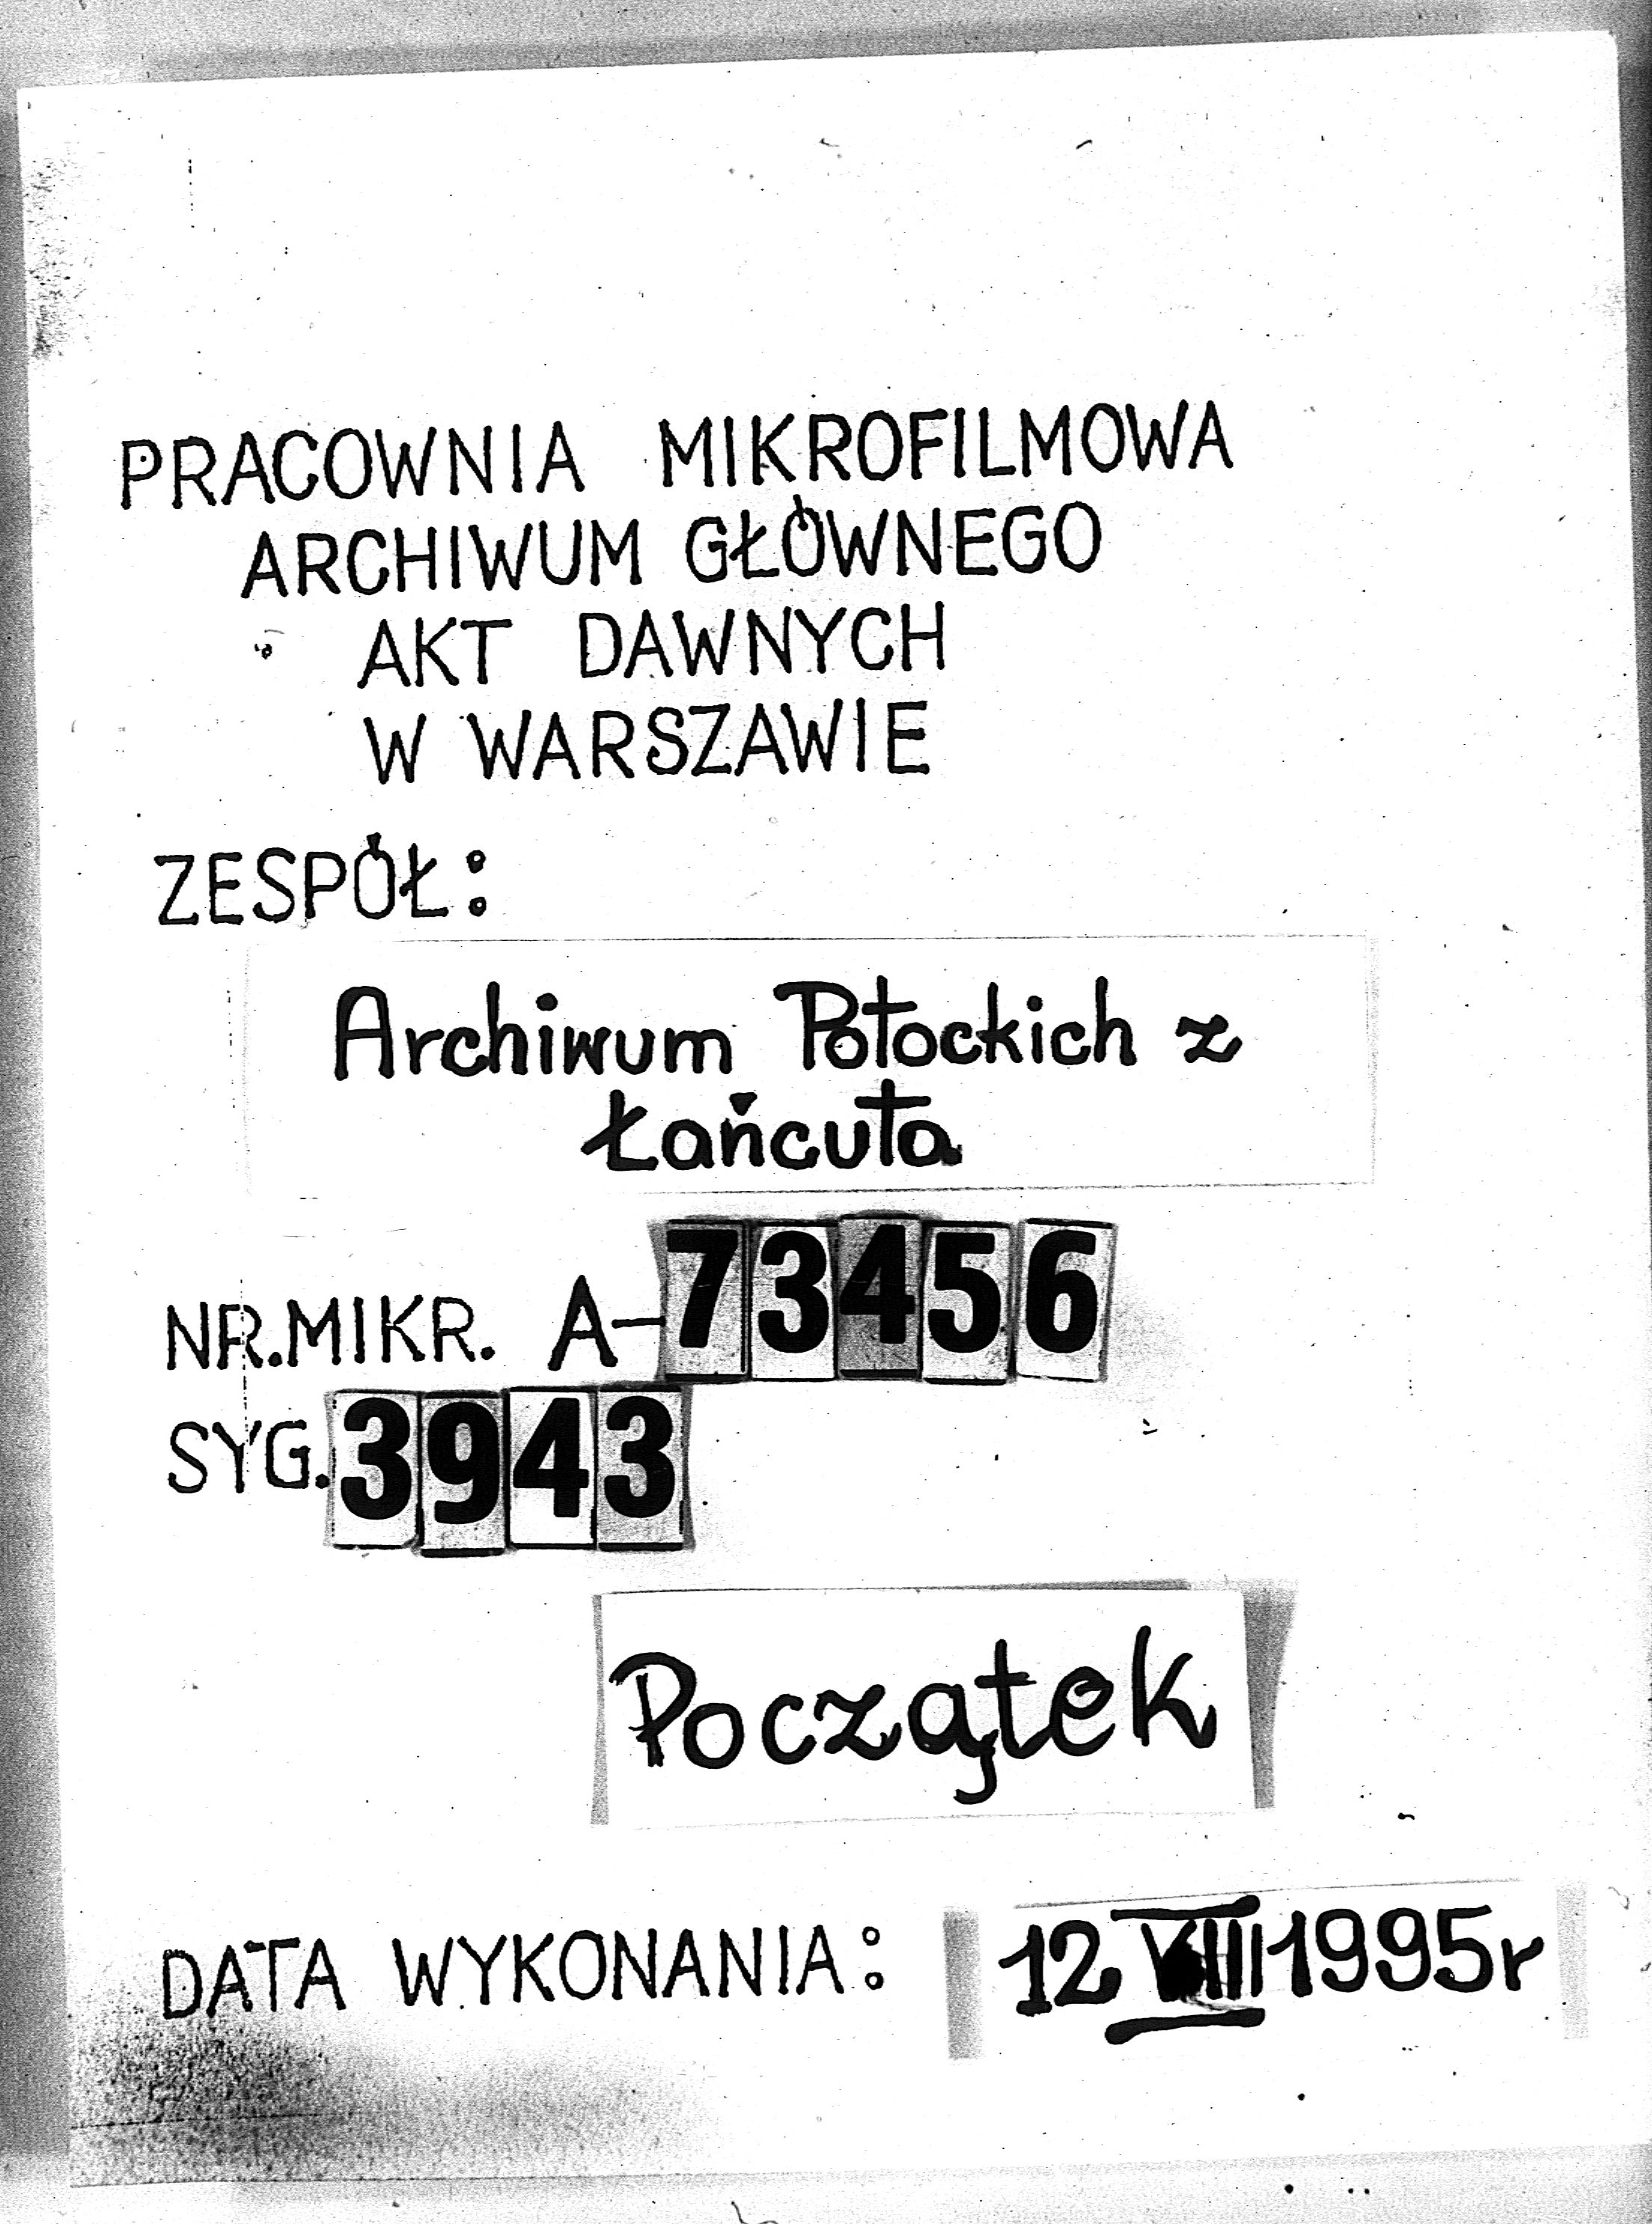 PRACOWNIA MIKROFILMOWA
ARCHIWUM GŁÓWNEGO
AKT DAWNYCH
W WARSZAWIE
ZESPÓŁ:
Archiwum Potockich z
Łańcuta
NR.MIKR. A-73456
SYG. 3943
Początek
DATA WYKONANIA: 12 VIII 1995r